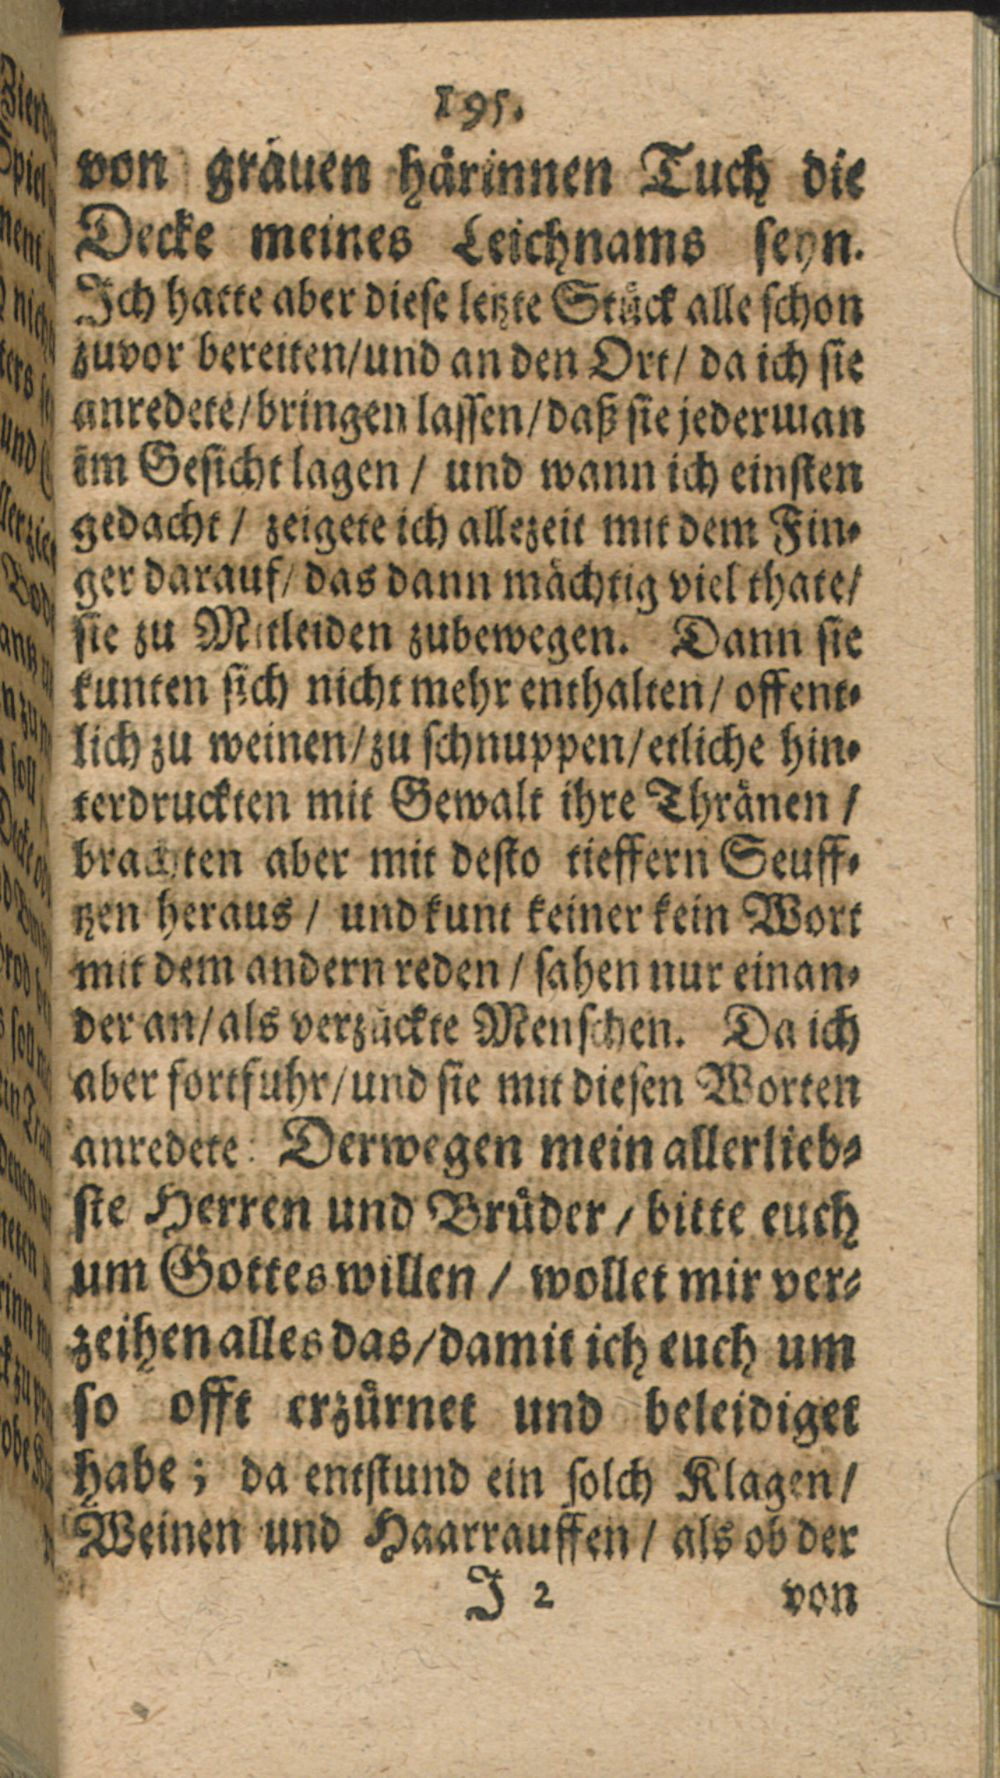 195.
von gräuen härinnen Tuch die
Decke meines Leichnams seyn.
Ich hatte aber diese letzte Stück alle schon
zuvor bereiten/und an den Ort/ da ich sie
anredete/bringen lassen/daß sie jederman
im Gesicht lagen / und wann ich einsten
gedacht / zeigete ich allezeit mit dem Fin-
ger darauf/ das dann mächtig viel thate/
sie zu Mitleiden zubewegen. Dann sie
kunten sich nicht mehr enthalten/ offent-
lich zu weinen/zu schnuppen/etliche hin-
terdruckten mit Gewalt ihre Thränen /
brachten aber mit desto tieffern Seuff-
tzen heraus / und kunt keiner kein Wort
mit dem andern reden / sahen nur einan-
der an/als verzückte Menschen. Da ich
aber fortfuhr/und sie mit diesen Worten
anredete: Derwegen mein allerlieb-
ste Herren und Brüder / bitte euch
um Gottes willen / wollet mir ver-
zeihen alles das/damit ich euch um
so offt erzürnet und beleidiget
habe; da entstund ein solch Klagen/
Weinen und Haarrauffen / als ob der
J 2 von